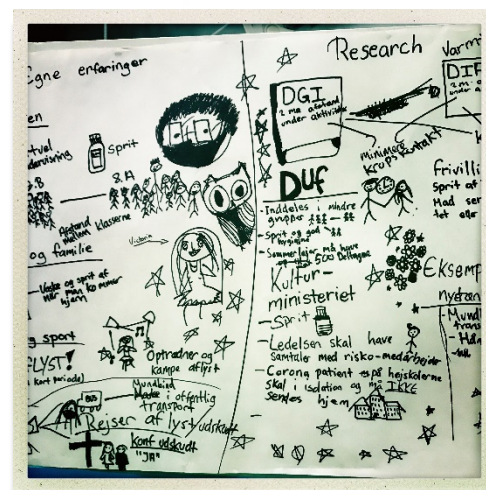 Egne erfaringer
Sprit
8.B
8.A
Afstand
mellem klasserne
og familie
Victoria
Vaske og sprit af
når man kommer
hjem
g sport
FLYST!
( kort periode)
Optrædner og
kampe aflyst
Mundbind
i offentlig
transport
BUS
Rejser aflyst/udskudt
Konf udskudt
"JA"
Research
DGI
2 m. afstand
under aktivitet
Minimere
Krops kontakt
Duf
- Inddeles i mindre
grupper
- Sprit og god
hygiejne
- Sommerlejr må have
500 Deltagere
Kultur-
ministeriet
- Sprit
- Ledelsen skal have
samtaler med risiko-medarbejder
- Corona patient på højskolerne
skal i isolation og må IKKE
sendes hjem
Varm
DIF
2 m.
under
Frivilli
Sprit af
Mad ser
tet eller
Eksemp
Mund
trans